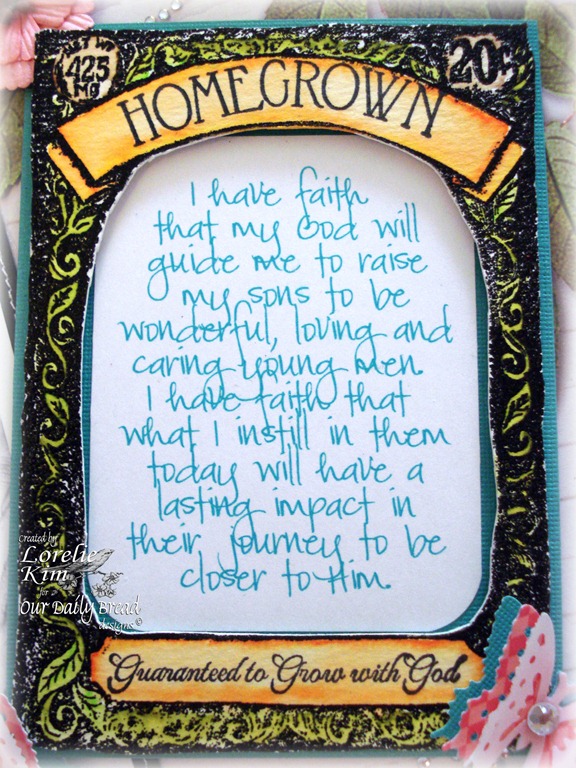 NET WT
425
MG
20¢
HOMEGROWN
I have faith
that my God will
guide me to raise
my sons to be
wonderful, loving and
caring young men.
I have faith that
what I instill in them
today will have a
lasting impact in
their journey to be
closer to Him.
Created by
Lorelie
Kim
for
Our Daily Bread
designs©
Guaranteed to Grow with God